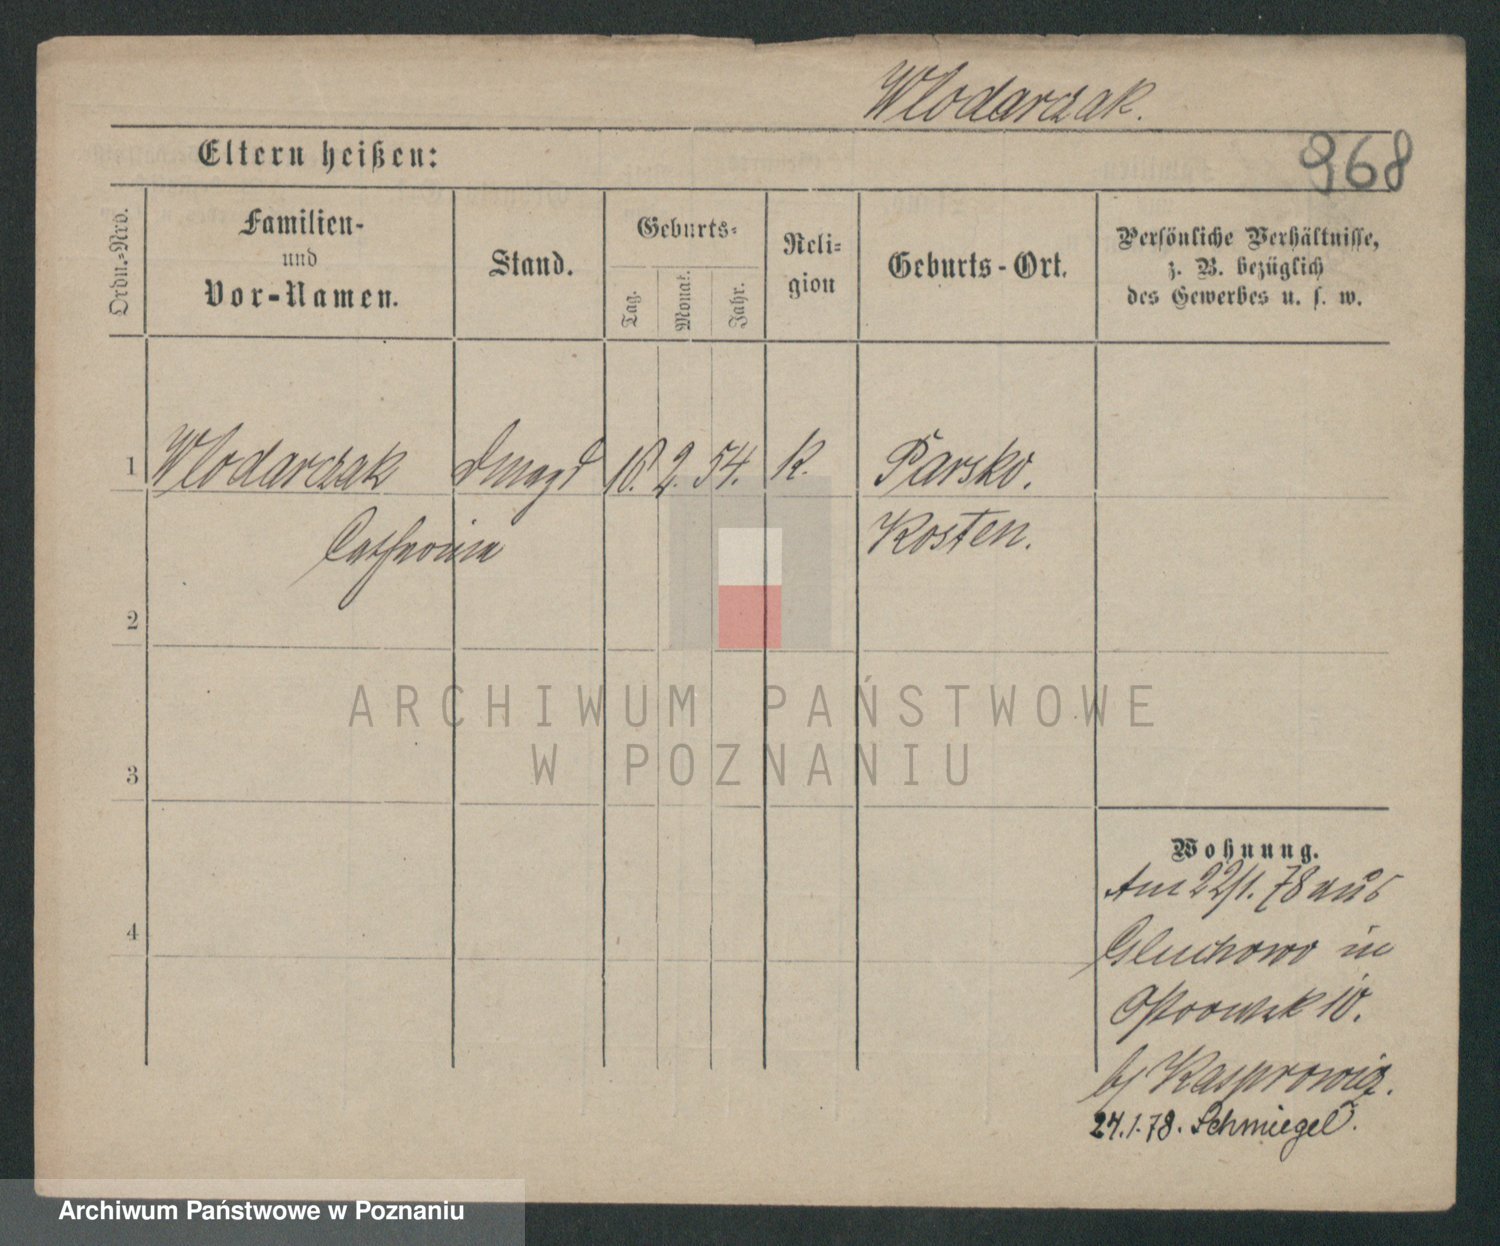 Wlodarczak.
968
Eltern heißen:
Ordn.-Nro.
Familien-
und
Vor-Namen.
Stand.
Geburts-
Tag.
Monat.
Jahr.
Reli-
gion
Geburts-Ort.
Persönliche Verhältnisse,
z. B. bezüglich
des Gewerbes u. s. w.
1 Wlodarczak Dmagd 2. 54. K. Parsko.
Catharina Kosten.
2
ARCHIWUM PAŃSTWOWE
W POZNANIU
3
Wohnung.
Am 22/1. 78 aus
Gluchowo in
4
Ostrowek 10.
b/ Kasprowicz.
24.1.78. Schmiegel.
Archiwum Państwowe w Poznaniu